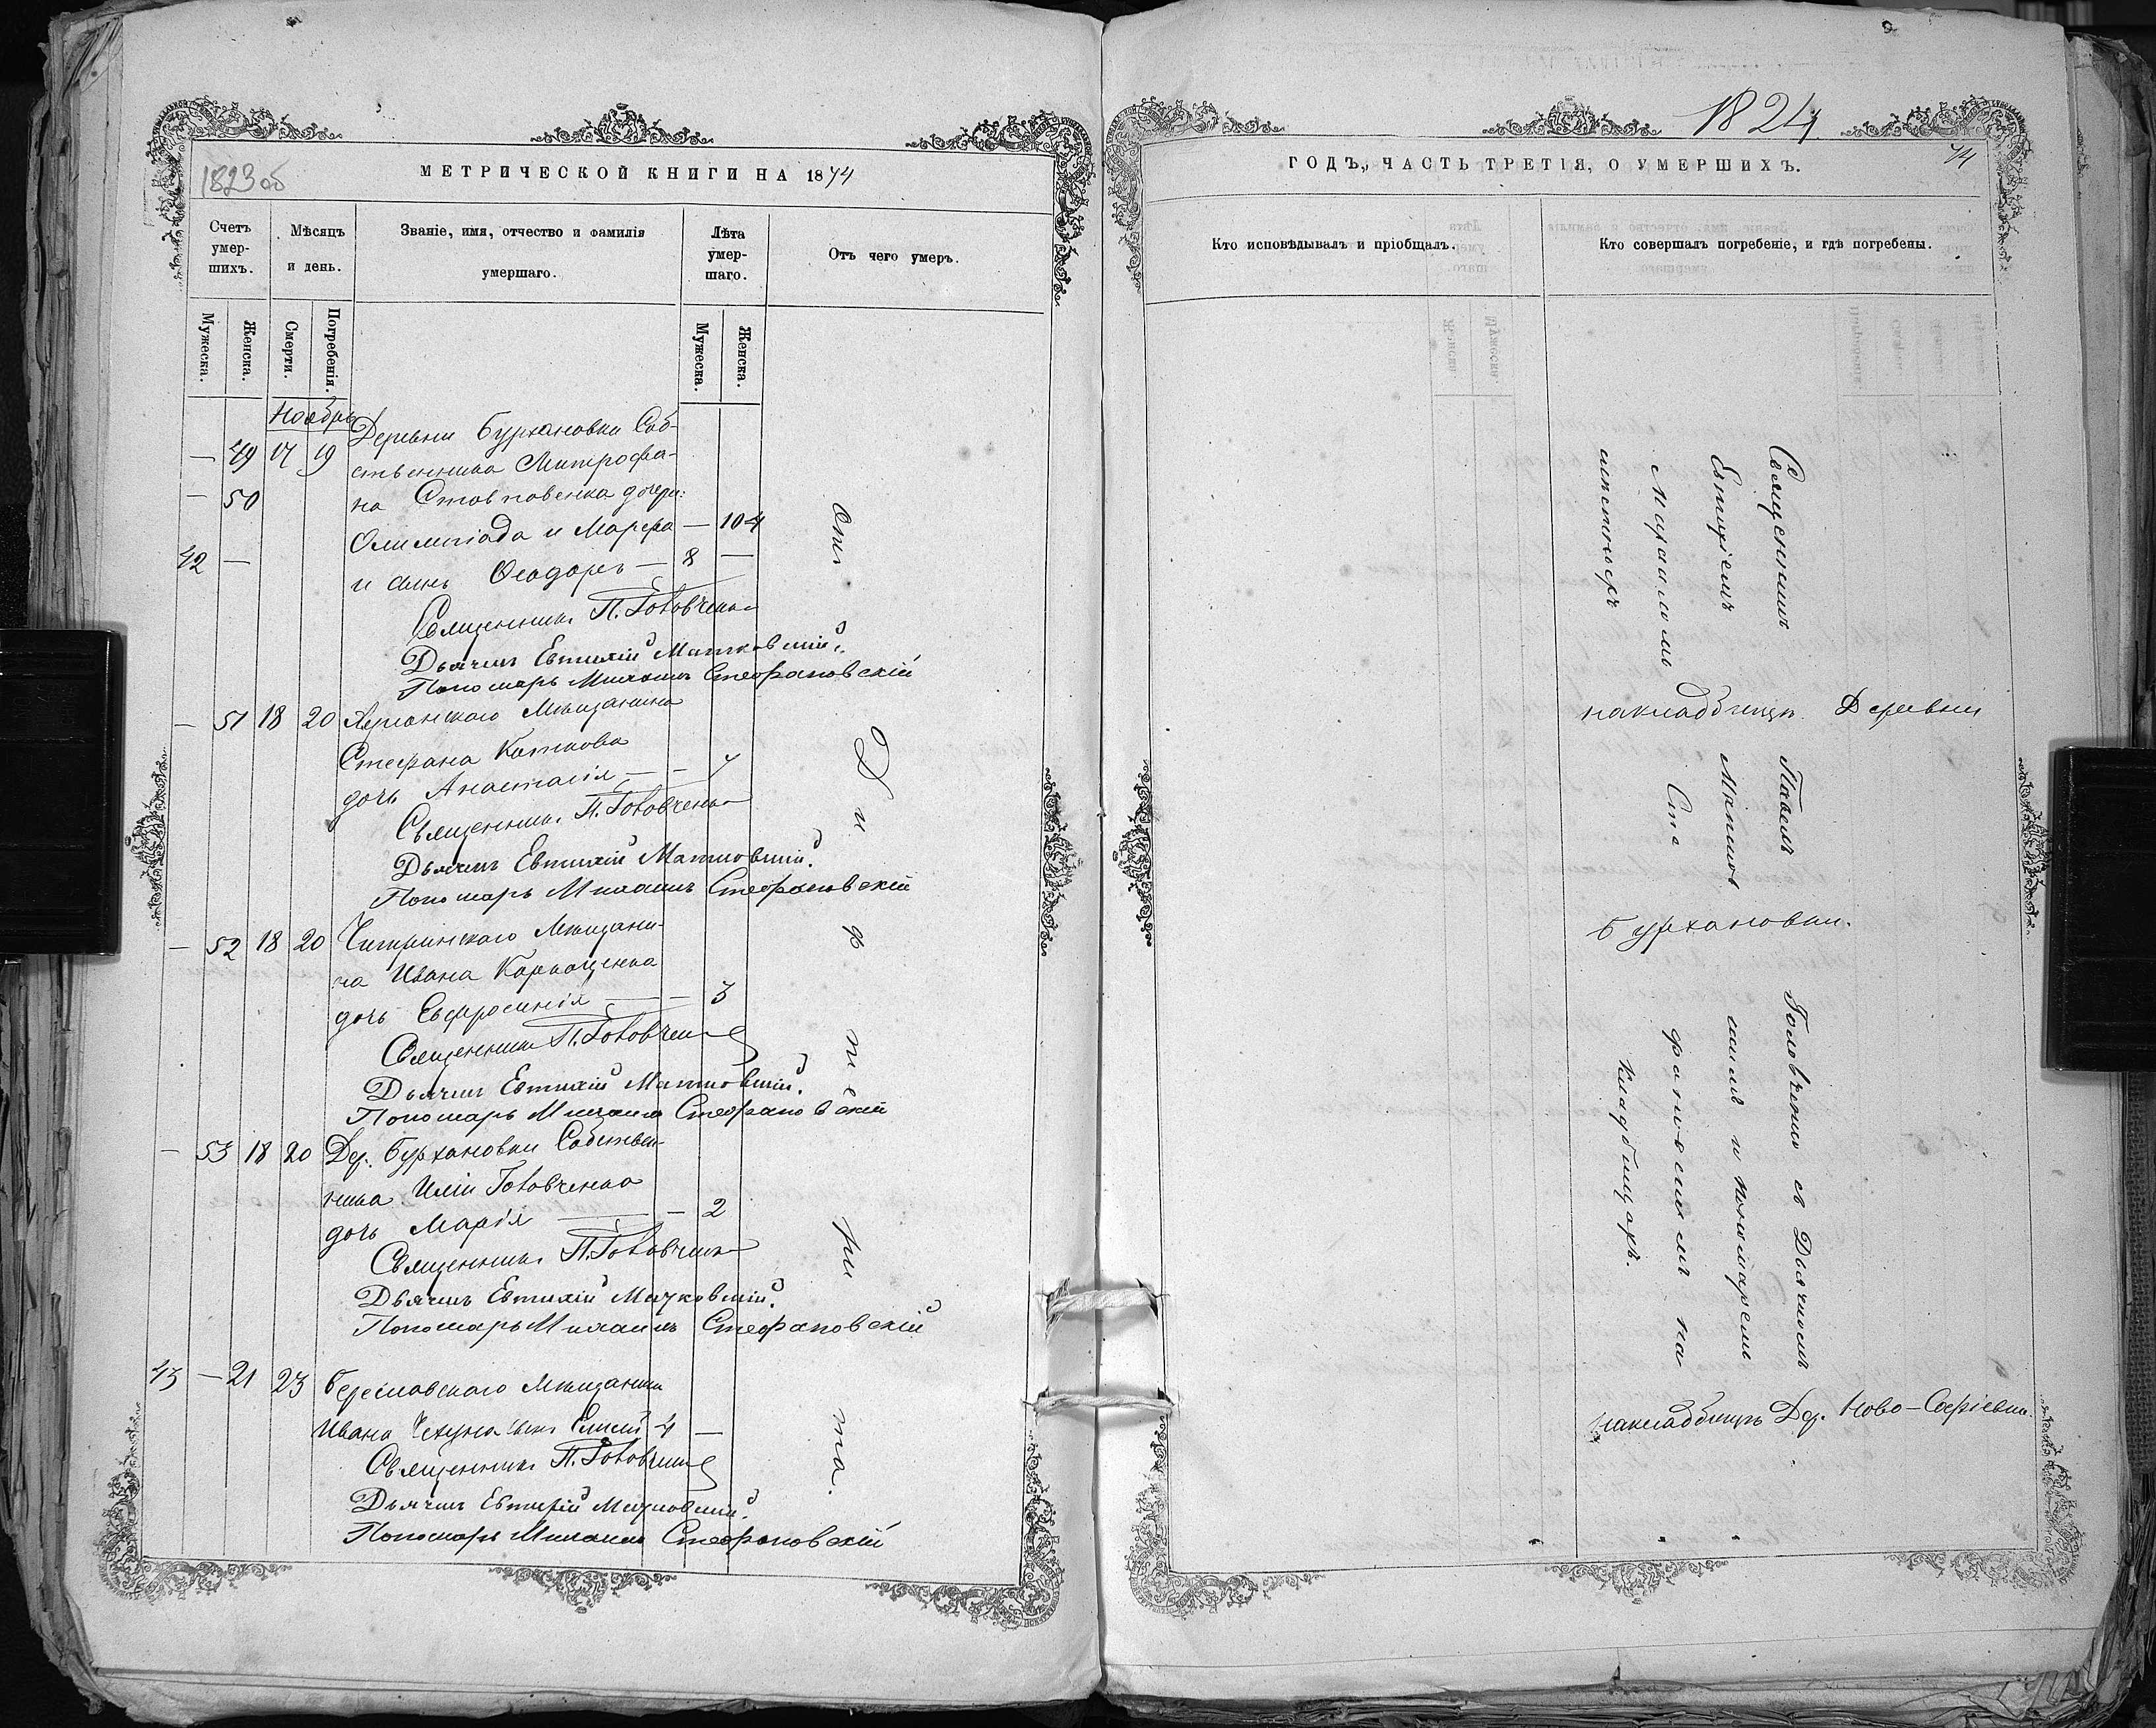 1823об
МЕТРИЧЕСКОЙ КНИГИ НА 1874
Счетъ умер- шихъ.
Мѣсяцъ и день.
Званіе, имя, отчество и фамилія умершаго.
Лѣта умер- шаго.
Отъ чего умеръ.
Мужеска.
Женска.
Смерти.
Погребенія.
Мужеска.
Женска.
Ноябрь
Деревни Бурхановки Соб-
— 49 17 19 ственника Митрофа-
— 50 на Стовповенка дочери:
Олимпіада и Марфа — 10-4
42 — и сынъ Ѳеодоръ — 8 —
Священникъ П. Головченко
Дьячекъ Евтихій Матковскій.
Пономарь Михаилъ Стефановскій
— 51 18 20 Херсонскаго Мѣщанина
Стефана Каткова
дочь Анастасія — — 7
Священникъ П. Головченко
Дьячекъ Евтихій Матковскій.
Пономарь Михаилъ Стефановскій
— 52 18 20 Чигиринскаго Мѣщани-
на Ивана
дочь Евфросинія — — 3
Священникъ П. Головченко
Дьячекъ Евтихій Матковскій.
Пономарь Михаилъ Стефановскій
— 53 18 20 Дер. Бурхановки Собствен-
ника Иліи Головченко
дочь Марія — — 2
Священникъ П. Головченко
Дьячекъ Евтихій Матковскій.
Пономарь Михаилъ Стефановскій
43 — 21 23 Бериславскаго Мѣщанина
Ивана сынъ 4 —
Священникъ П. Головченко
Дьячекъ Евтихій Матковскій.
Пономарь Михаилъ Стефановскій
отъ Дифтерита.
1824
74
ГОДЪ, ЧАСТЬ ТРЕТІЯ, О УМЕРШИХЪ.
Кто исповѣдывалъ и пріобщалъ.
Кто совершалъ погребеніе, и гдѣ погребены.
Священникъ Павелъ Головченко съ Дьячкомъ
Евтихіемъ Матковскимъ и Пономаремъ
Михаиломъ Стефановскимъ на
кладбищахъ.
на кладбищѣ Деревни
Бурхановки.
на кладбищѣ Дер. Ново-Софіевки.